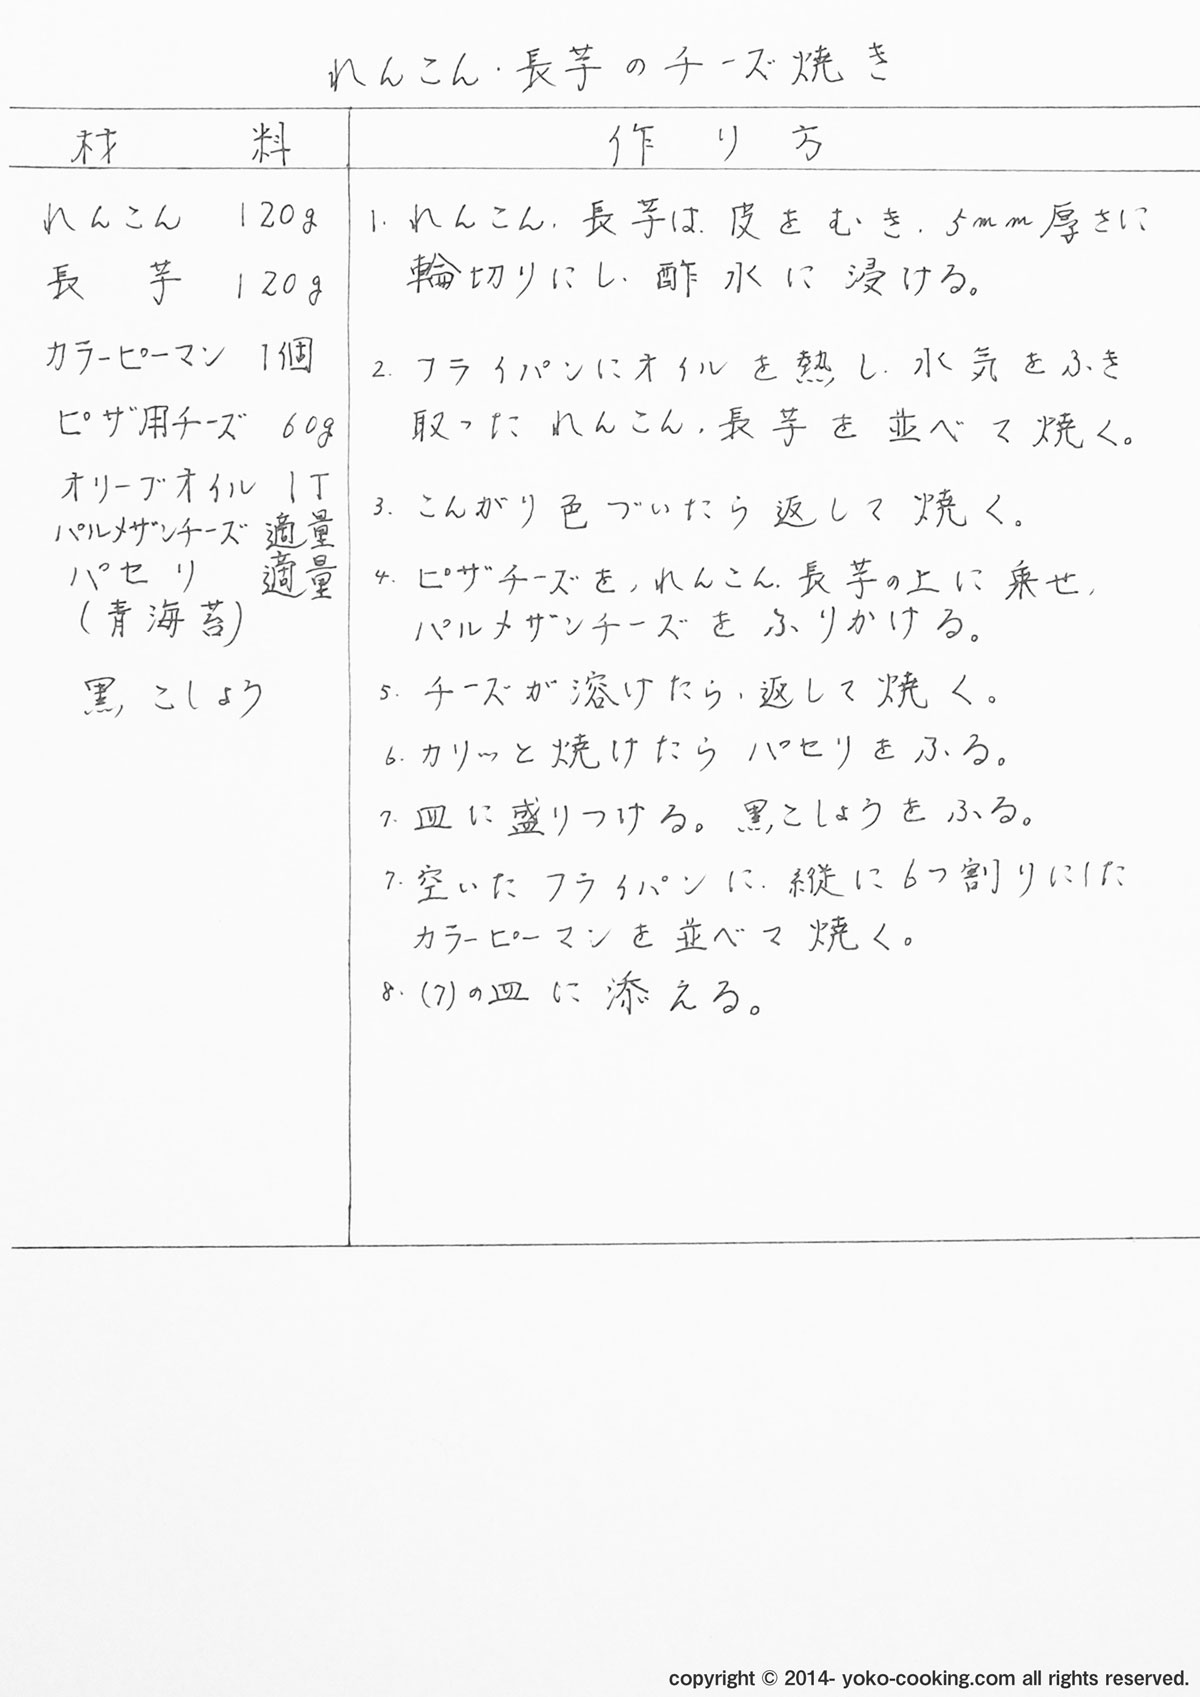 れんこん・長芋のチーズ焼き
材料
れんこん 120g
長芋 120g
カラーピーマン 1個
ピザ用チーズ 60g
オリーブオイル 1T
パルメザンチーズ 適量
パセリ 適量
(青海苔)
黒こしょう
作り方
1. れんこん、長芋は皮をむき、5mm厚さに
輪切りにし、酢水に浸ける。
2. フライパンにオイルを熱し、水気をふき
取ったれんこん、長芋を並べて焼く。
3. こんがり色づいたら返して焼く。
4. ピザチーズを、れんこん、長芋の上に乗せ、
パルメザンチーズをふりかける。
5. チーズが溶けたら、返して焼く。
6. カリッと焼けたらパセリをふる。
7. 皿に盛りつける。黒こしょうをふる。
7. 空いたフライパンに、縦に6つ割りにした
カラーピーマンを並べて焼く。
8. (7)の皿に添える。
copyright © 2014- yoko-cooking.com all rights reserved.